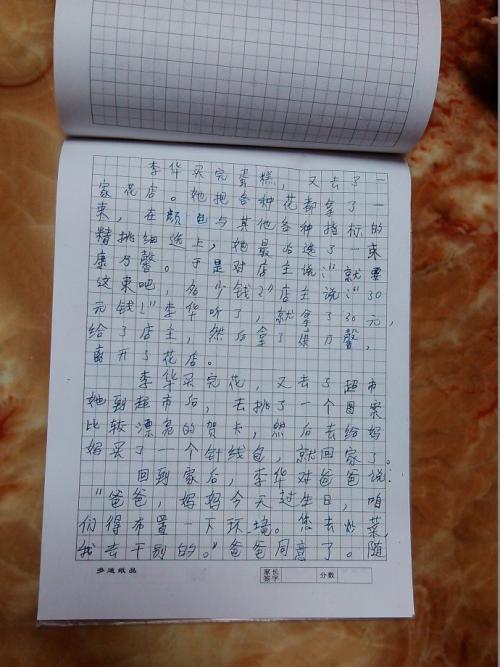 李华买完蛋糕，又去了一
家花店。她把各种花都拿了一
束，在颜色与其他各种指标的
精挑细选上，她最后选了一束
康乃馨。于是对店主说：“就要
这束吧，多少钱？”店主说：“30
元钱！”李华听了，就拿了30元，
给了店主，然后拿了康乃馨，
离开了花店。
李华买完花，又去了超市
她到超市后，去挑了一个图案
比较漂亮的贺卡，然后去给妈
妈买了一个针线包，就回家了。
回到家后，李华对爸爸说：
“爸爸，妈妈今天过生日，咱
们得布置一下环境。您去炒菜，
我去干别的。”爸爸同意了。随
多速纸品
家长
签字
分数